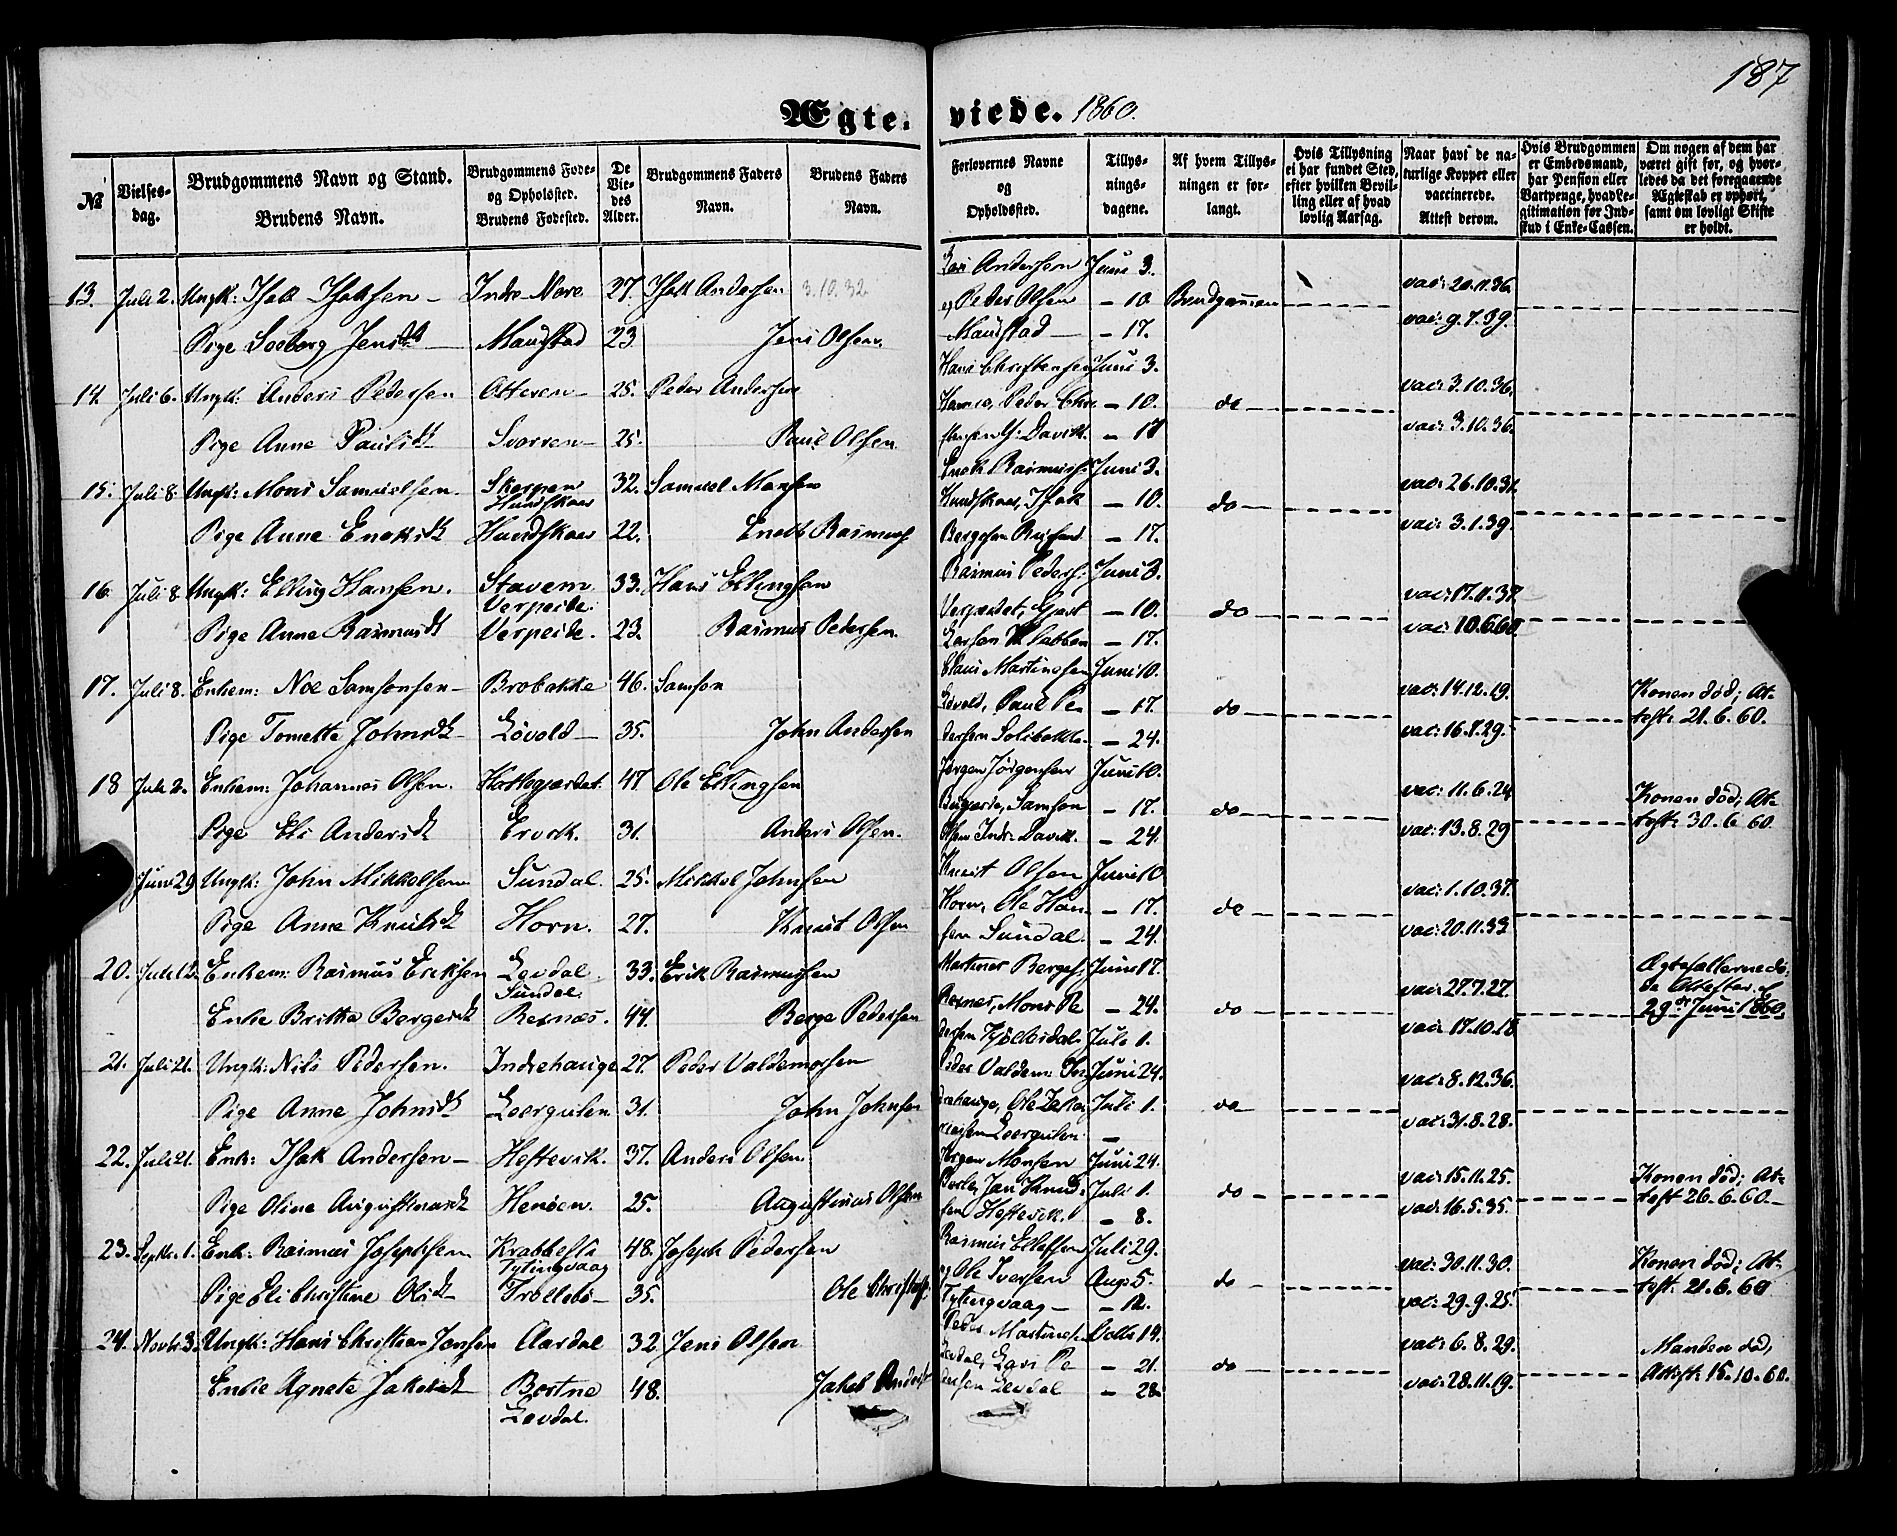 187
Ægteviede. 1860.
№
Vielsesdag.
Brudgommens Navn og Stand.
Brudens Navn.
Brudgommens Føde-
og Opholdssted.
Brudens Fødested.
De
Vie-
des
Alder.
Brudgommens Faders
Navn.
Brudens Faders
Navn.
Forlovernes Navne
og
Opholdssted.
Tillys-
nings-
dagene.
Af hvem Tillys-
ningen er for-
langt.
Hvis Tillysning
ei har fundet Sted,
efter hvilken Bevil-
ling eller af hvad
lovlig Aarsag.
Naar havt de na-
turlige Kopper eller
vaccinerede.
Attest derom.
Hvis Brudgommen
er Embedsmand,
har Pension eller
Vartpenge, hvad Le-
gitimation for Ind-
skud i Enke-Cassen.
Om nogen af dem har
været gift før, og hvor-
ledes da det foregaaende
Ægteskab er ophørt,
samt om lovligt Skifte
er holdt.
13. Juli 2. Ungk: Isak Isaksen Indre Nore 27. Isak Andersen 3.10.32 Andersen Juni 3. vac: 20.11.36.
og Peder Olsen — 10. Brudgommen
Pige Soeborg Jensdt Maurstad 23 Jens Olsen. Maurstad — 17. vac: 9.7.39.
14. Juli 6. Ungk: Anders Pedersen Otteren 25. Peder Andersen Hans Christensen Juni 3. vac: 3.10.36.
Peder Chri — 10. do
Pige Anne Paulsdt Svorven 25. Paul Olsen — 17 vac: 3.10.36.
15. Juli 8. Ungk: Mons Samuelsen. Skorpen Hundskaar 32. Samuel Monsen Enok Rasmuss. Juni 3. vac: 26.10.31.
Hundskaar, Isak — 10. do
Pige Anne Enoksdt Hundskaar 22. Enok Rasmuss. — 17. vac: 3.1.39.
16. Juli 8. Ungk: Elling Hansen. Stavem Verpeide. 33. Hans Ellingsen Rasmus Peders. Juni 3. vac: 17.11.37.
— 10. do
Pige Anne Rasmusdt Verpeide. 23. Rasmus Pedersen. — 17. vac: 10.6.60
17. Juli 8. Enkem: Noe Samsonsen Brobakke 46. Samson Claus Martinusen Juni 10. vac: 14.12.19. Konen død; At-
Løvold, Paul Pe — 17. do test. 21.6.60.
Pige Tomette Johnsdt Løvold 35. John Andersen dersen — 24. vac: 16.7.29.
18 Juli 2. Enkem: Johannes Olsen. 47 Ole Ellingsen Jørgen Jørgensen Juni 10. vac: 11.6.24 Konen død; At-
Samson — 17. do test. 30.6.60.
Pige Eli Andersdt Ervik. 31. Anders Olsen. — 24. vac: 13.8.29
Juni 29 Ungk: John Mikkelsen Sundal. 25. Mikkel Johnsen Knut Olsen Juni 10 vac: 1.10.37.
Horn, Ole Han — 17. do
Pige Anne Knutsdt Horn. 27. Knut Olsen sen Sundal. — 24. vac: 20.11.33
20. Juli 12. Enkem: Rasmus Eriksen Levdal Sundal. 33. Erik Rasmussen Martinus Berges. Juni 17. vac: 27.7.27.
Rennes, Mons Pe — 24. do 29de Juni 1860.
Enke Britha Bergesdt 44. Berge Pedersen dersen Juli 1. vac: 17.10.18
21. Juli 21. Ungk: Nils Pedersen. Indrehauge 27. Peder Valdemarsen Peder Valdem: In Juni 24. vac: 8.12.36.
drehauge, Ole Juli 1. do
Pige Anne Johnsdt Leergulen 31. John Johnsen Leergulen — vac: 31.8.28.
22. Juli 21. Enk: Isak Andersen Hestevik. 37. Anders Olsen Jørgen Monsen Juni 24. vac: 15.11.25. Konen død; At-
Juli 1. do test 26.6.60.
Pige Oline Augustinusdt Henøen. 25. Augustinus Olsen sen Hestevik. — 8. vac: 16.5.35.
23. Septr. 1. Enk: Rasmus Josephsen Krabbestø Tytingvaag 48. Joseph Pedersen Rasmus Juli 29. vac: 30.11.30. Konen død; At-
og Ole Iversen Aug: 5. do test. 21.6.60
Pige Eli Christine Olsdt Trollebø 35. Ole Tytingvaag — 12. vac: 29.9.25.
24. Novbr 3. Ungk: Hans Christian Jensen Aardal 32 Jens Olsen Peder Octbr 14. vac: 6.8.29. Manden død,
Levdal, Lars Pe — 21. do Attest. 15.10.60.
Enke Agnete Jakobsdt Bortne Levdal. 48. Jakob Anders dersen Levdal — 28. vac: 28.11.19.